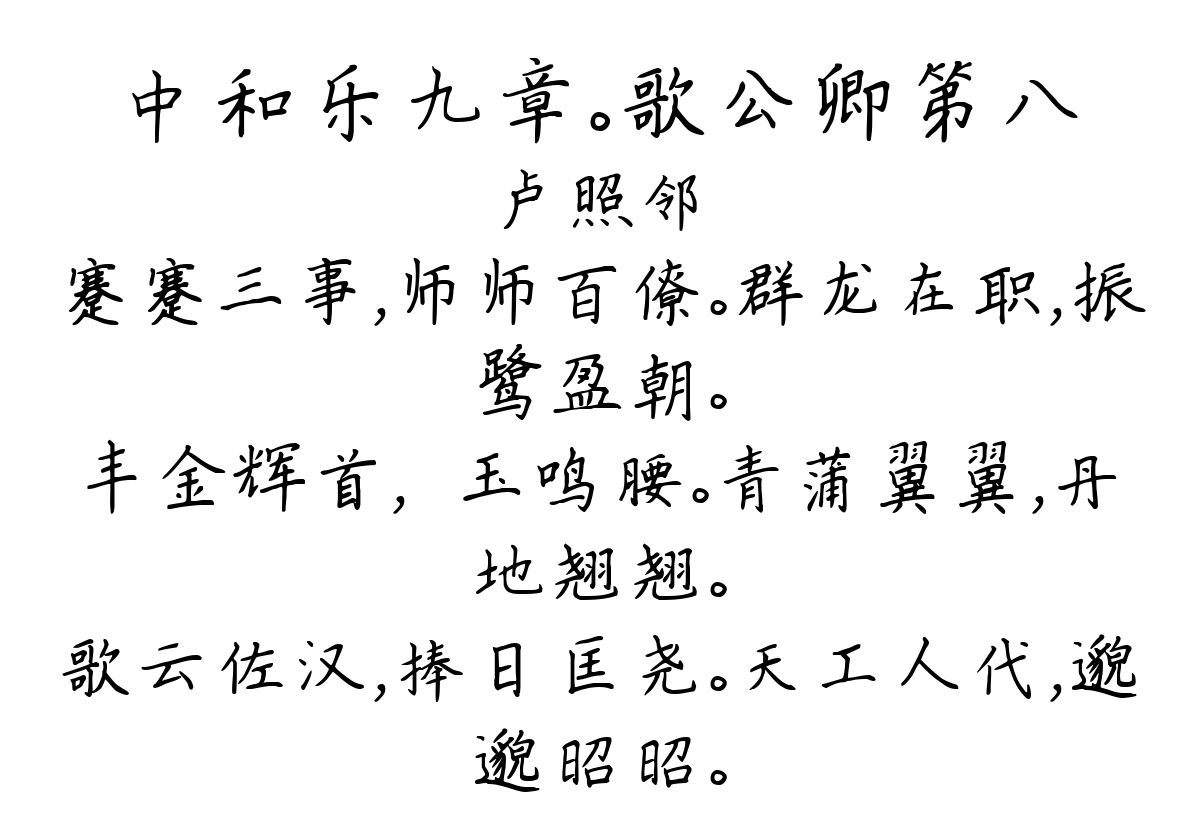 中和乐九章。歌公卿第八
卢照邻
蹇蹇三事,师师百僚。群龙在职,振
鹭盈朝。
丰金辉首，玉鸣腰。青蒲翼翼,丹
地翘翘。
歌云佐汉,捧日匡尧。天工人代,邈
邈昭昭。